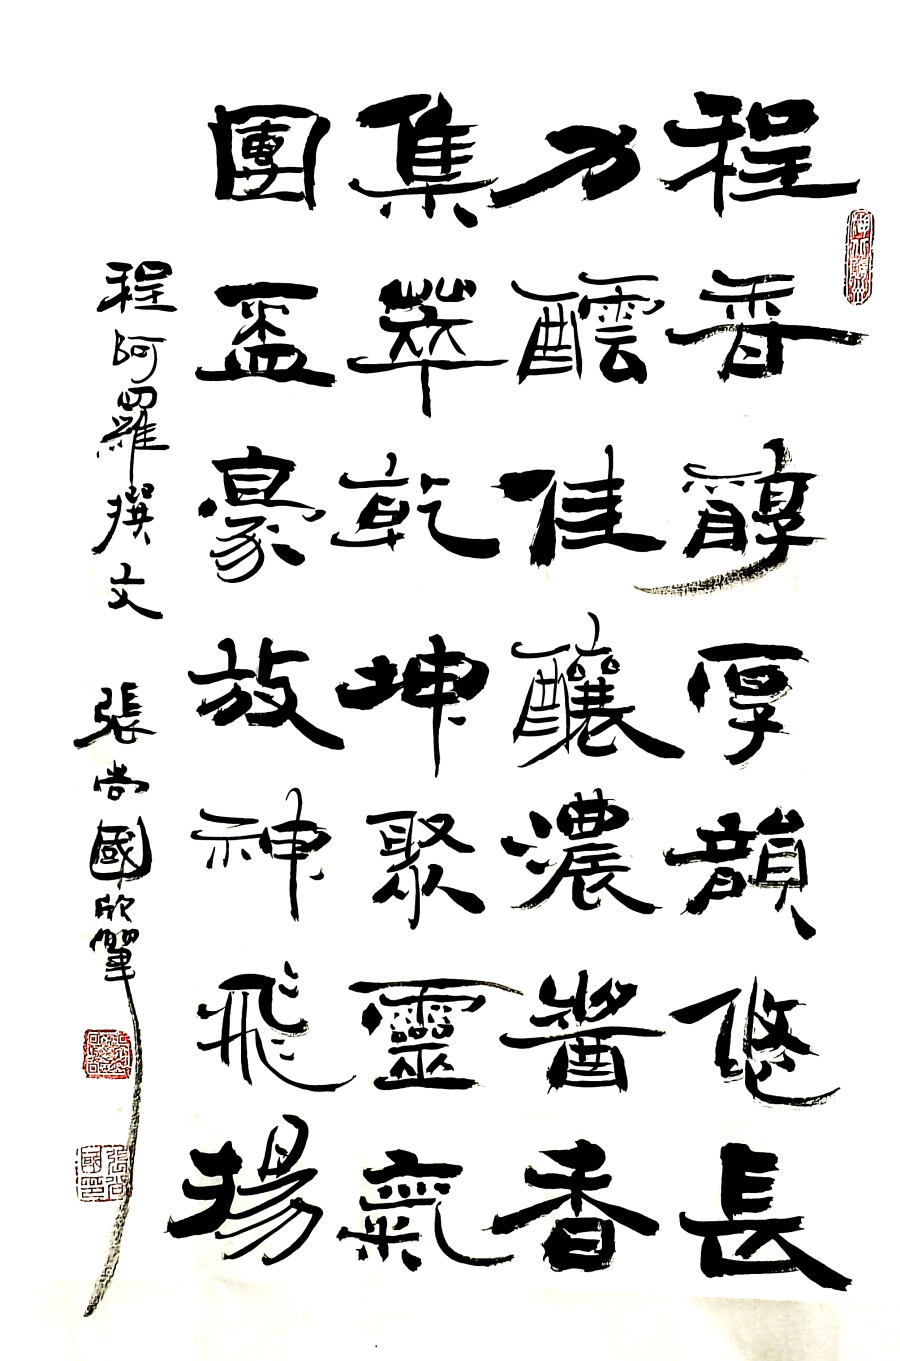 程香醇厚韻悠長
力醞佳釀濃醬香
集萃乾坤聚靈氣
團盃豪放神飛揚
程阿羅撰文 張尚國欣筆
張尚國印